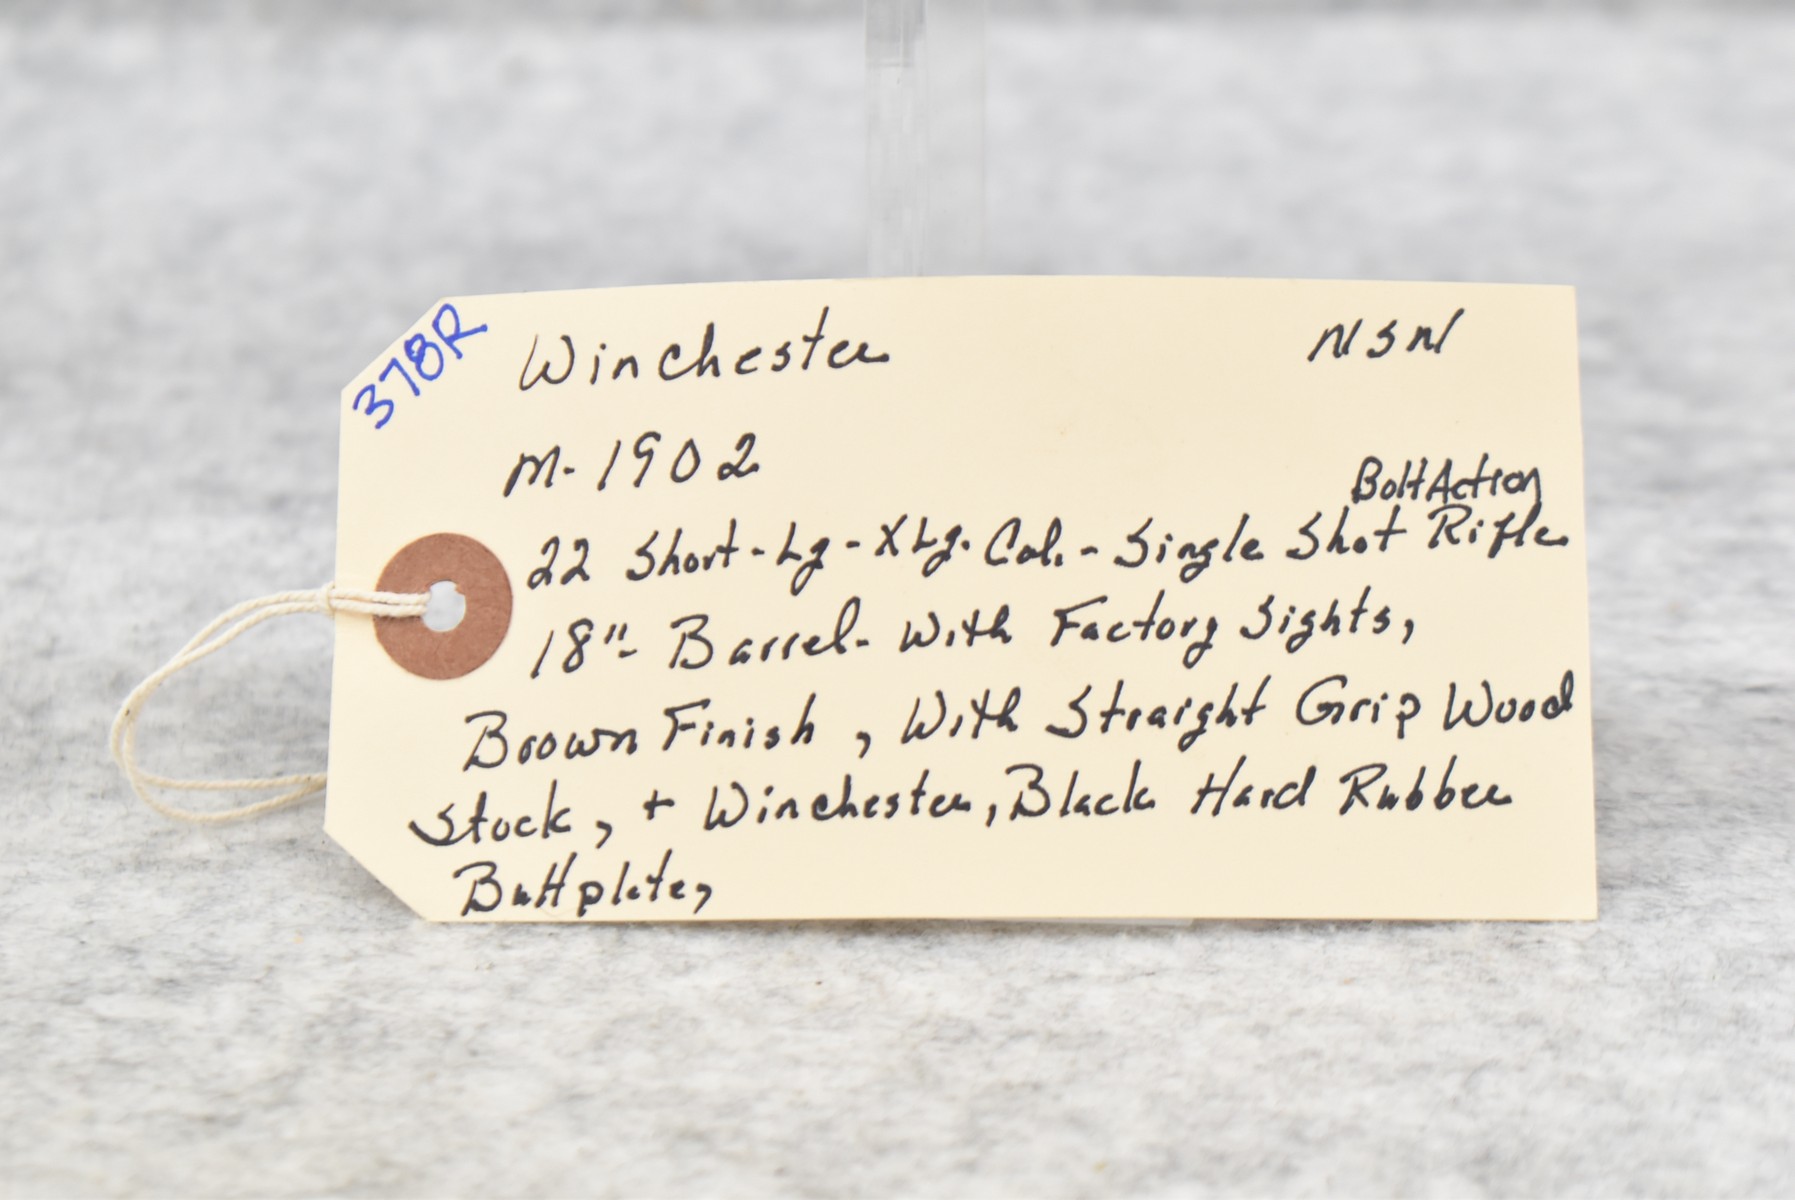 378R
Winchester NSN
M-1902
Bolt Action
22 Short-Lg-XLg. Cal.-Single Shot Rifle
18"- Barrel- With Factory Sights,
Brown Finish, With Straight Grip Wood
Stock, + Winchester, Black Hard Rubber
Buttplate,